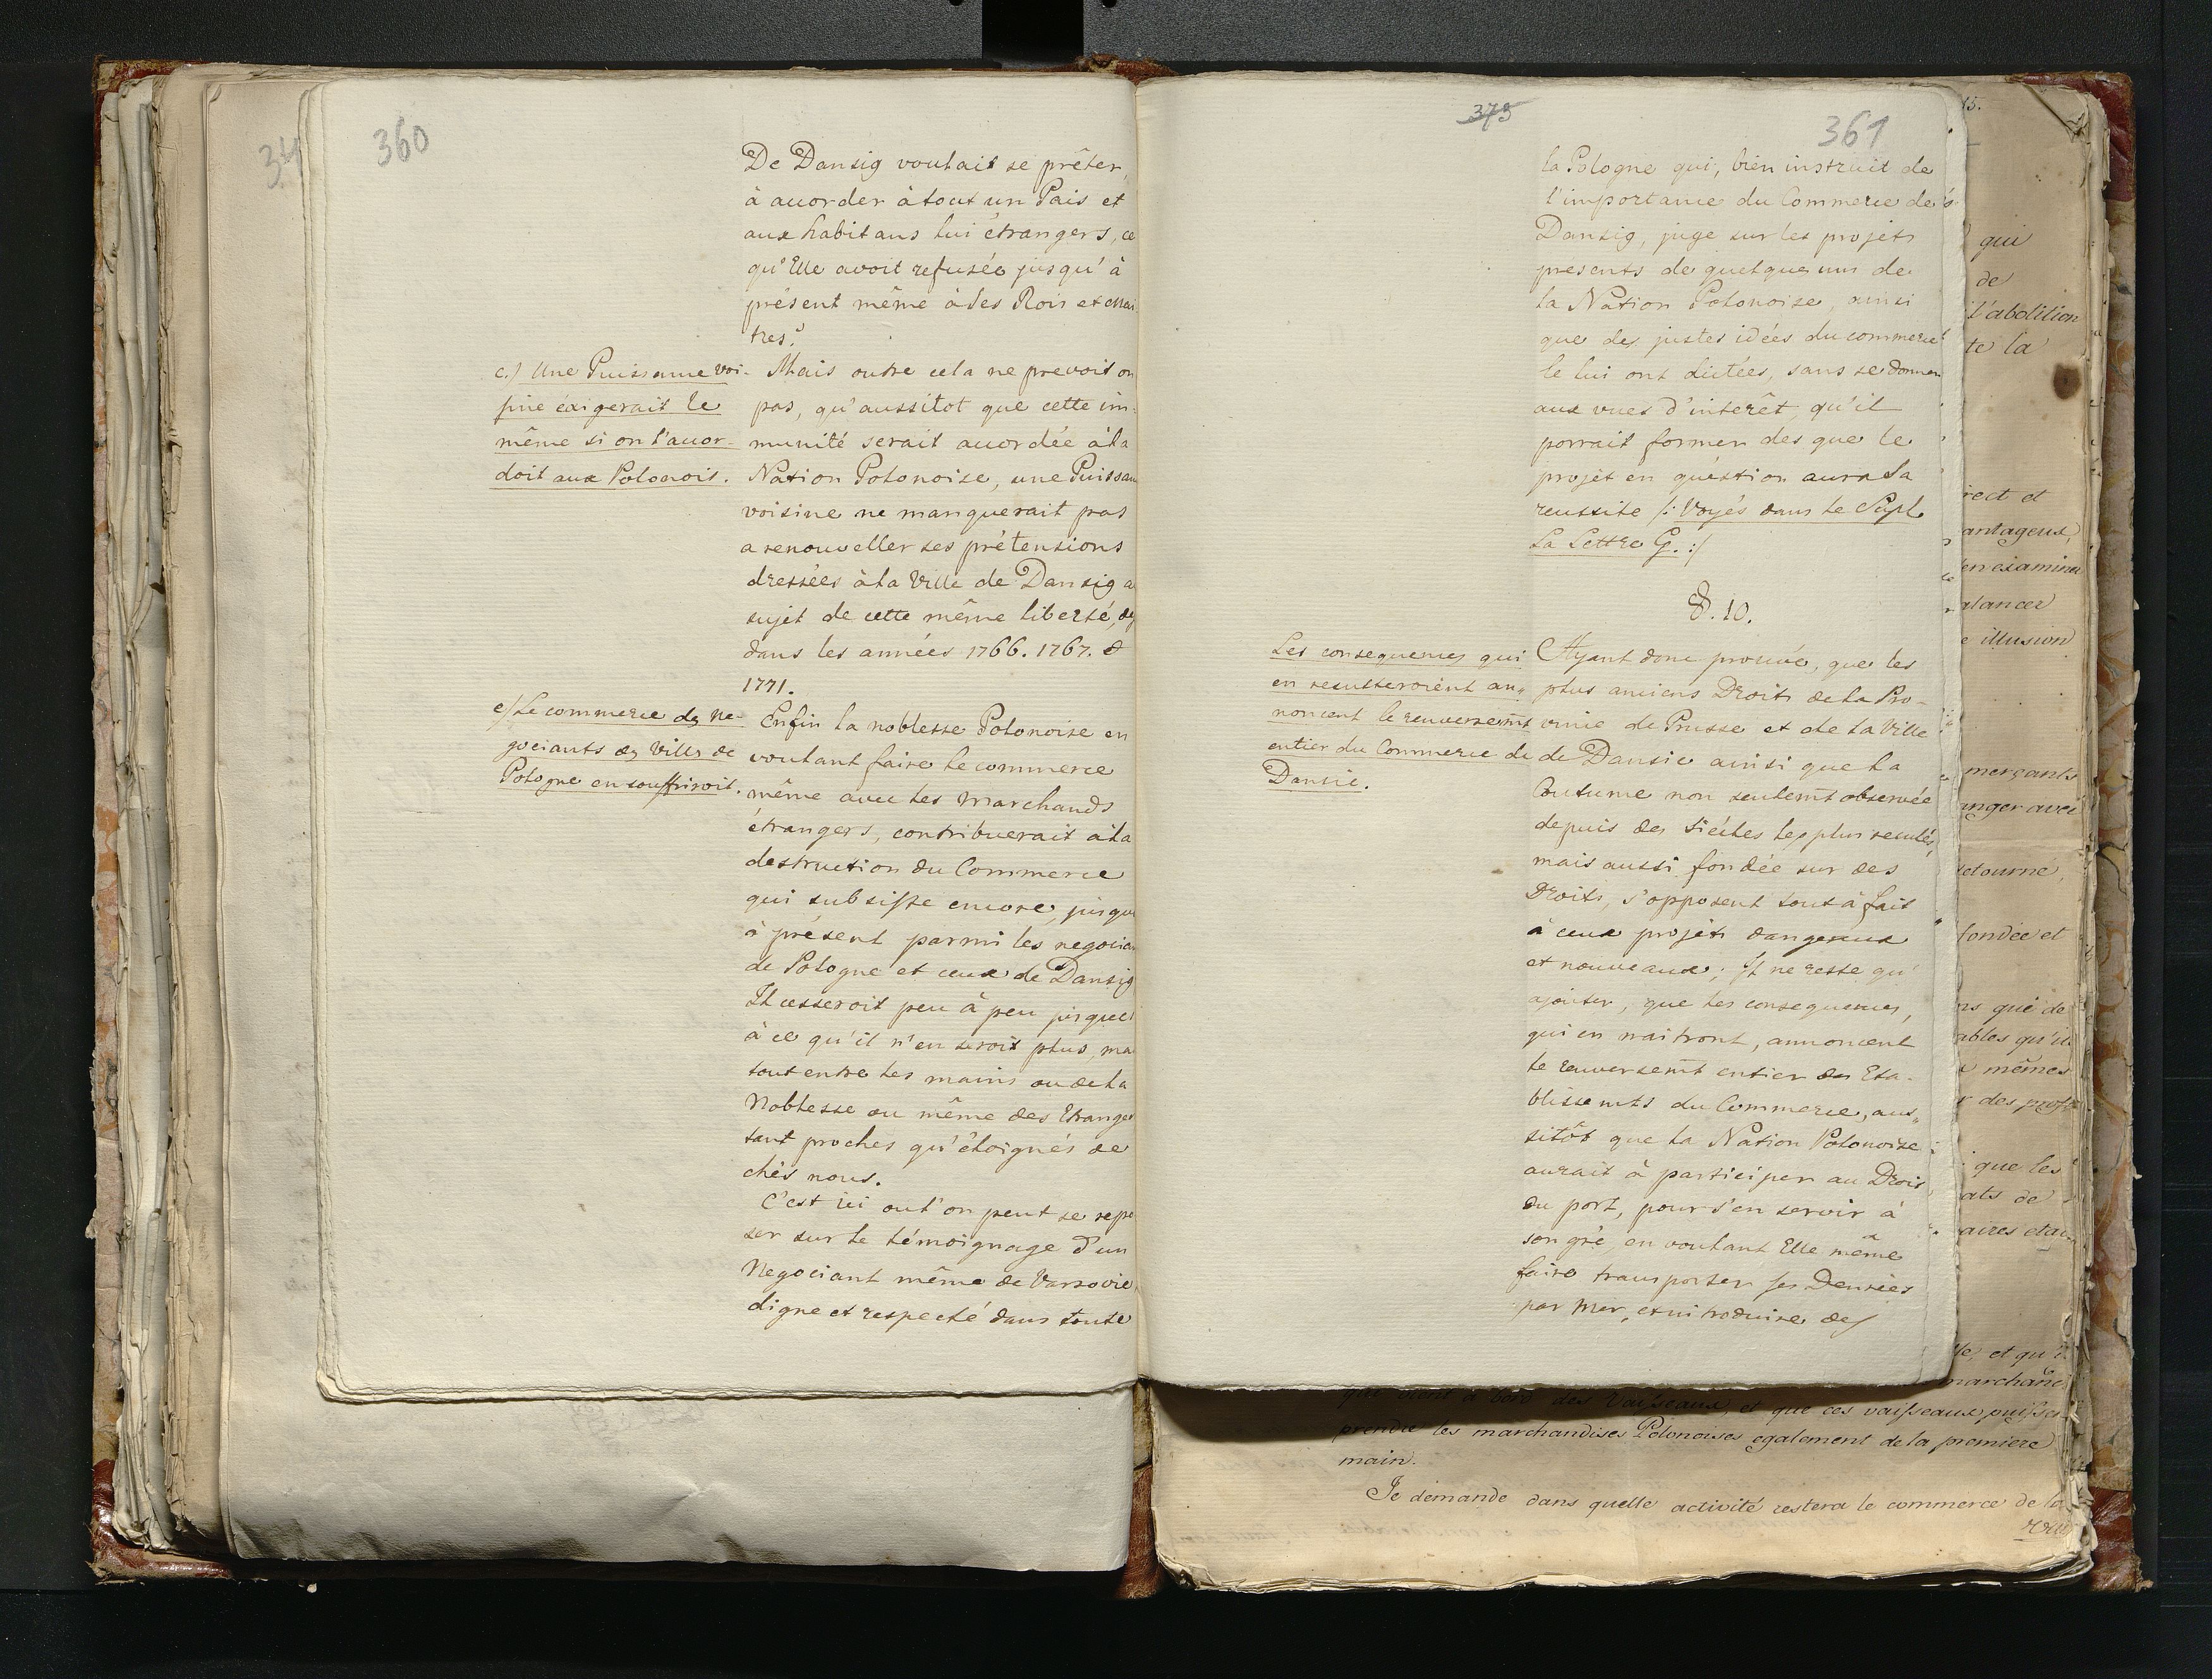 360
De Dansig voulait se prêter,
à accorder à tout un Païs et
aux habitans lui étrangers, ce
qu'Elle avoit refusée jusqu'à
présent même à ses Rois et Mai
tres?
c.) Une Puissance voi-
sine éxigerait le
même si on l'accor-
doit aux Polonois.
Mais outre cela ne prevoit on
pas, qu'aussitot que cette im-
munité serait accordée à la
Nation Polonoise, une Puissan
voisine ne manquerait pas
a renouveller ses prétensions
dressées à la Ville de Dansig a
sujet de cette même liberté,
dans les années 1766. 1767. &
1771.
e) Le commerce des Ne-
gociants des Villes de
Pologne en souffriroit.
Enfin la noblesse Polonoise en
voulant faire le commerce
même avec les Marchands
étrangers, contribuerait à la
destruction du Commerce
qui subsiste encore, jusqu
à présent parmi les negocia
de Pologne et ceux de Dansig
Il cesseroit peu à peu jusque
à ce qu'il n'en seroit plus, ma
tout entre les mains ou de la
Noblesse ou même des Etrange
tant proches qu'éloignés de
chés nous.
C'est ici ou l'on peut se repo
ser sur le témoignage d'un
Negociant même de Varsovie,
digne et respecté dans toute
375
361
la Pologne qui, bien instruit de
l'importance du Commerce de
Danzig, juge sur les projets
presents de quelques uns de
la Nation Polonoise, ainsi
que des justes idées du commerce
le lui ont dictées, sans se donner
aux vues d'interêt, qu'il
porrait former des que le
projet en quéstion aura sa
reussite /: Voyés dans le Supl
La Lettre G. :/
§. 10.
Les consequences qui
en resulteroient an„
noncent le renversemt
entier du Commerce de
Dansic.
Ayant donc prouvé, que les
plus anciens Droits de la Pro-
vince de Prusse et de la Ville
de Dansic ainsi que la
Coutume non seulemt observée
depuis des siécles les plus reculés,
mais aussi fondée sur des
Droits, s'opposent tout à fait
à ceux projets dangereux
et nouveaux; Il ne reste qu'
ajouter, que les consequences,
qui en naitront, annoncent
le renversemt entier des Eta-
blissemts du Commerce, aus„
sitôt que la Nation Polonoise
aurait à participer au Droit
du port, pour s'en servir à
son gré, en voulant Elle même
faire transporter ses Denrées
par Mer, et introduire des
15.
qui
de
l'abolition
te la
rect et
antageux,
en examine
alancer
e illusion
merçants
anger avec
retourne,
fondée et
ns que de
ables qu'il
mêmes
des profi
que les
ats de
aires
le, et qu'
marchand
à bord des Vaisseaux, et que ces vaisseaux puisse
prendre les marchandises Polonoises egalement de la premiere
main.
Je demande dans quelle activité restera le commerce de la